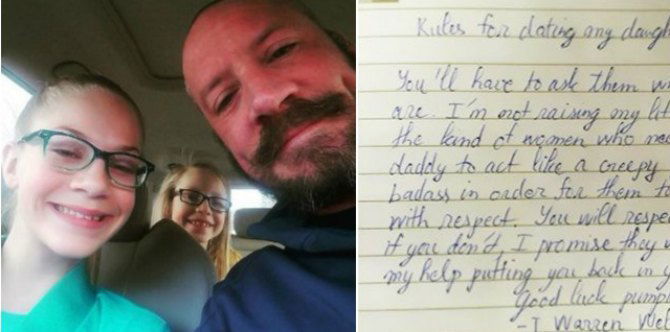 Rules for dating my
You'll have to ask them
are. I'm not raising my
the kind of women who
daddy to act like a creepy
badass in order for them
with respect. You will
if you don't, I promise they
my help putting you back in
Good luck
-J Warren